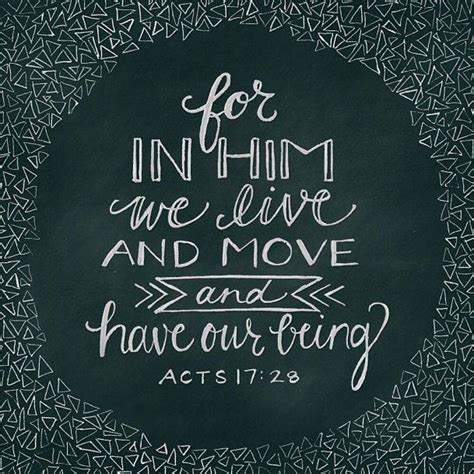 for
IN HIM
we live
AND MOVE
and
have our being
ACTS 17:28